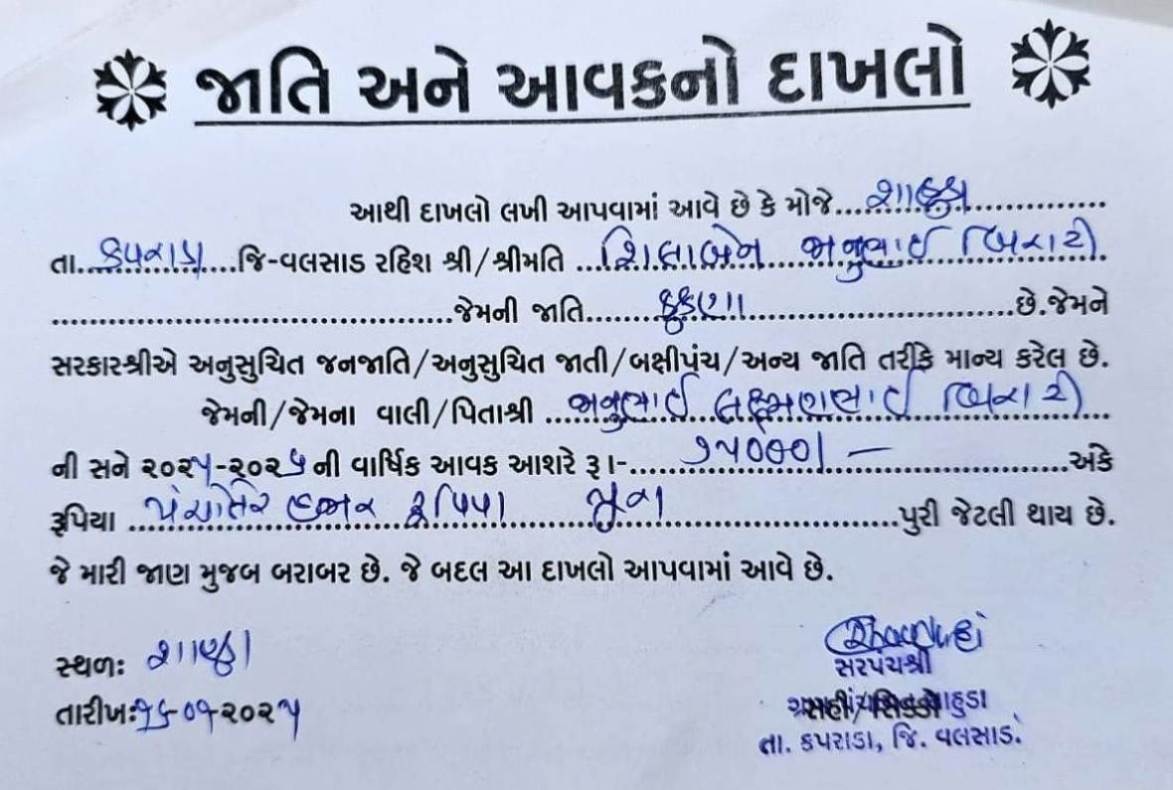 જાતિ અને આવકનો દાખલો
આથી દાખલો લખી આપવામાં આવે છે કે મોજે... શાહુડા
તા. કપરાડા જિ-વલસાડ રહિશ શ્રી/શ્રીમતિ શિલાબેન
જેમની જાતિ કુકણા છે.જેમને
સરકારશ્રીએ અનુસુચિત જનજાતિ/અનુસુચિત જાતી/બક્ષીપંચ/અન્ય જાતિ તરીકે માન્ય કરેલ છે.
જેમની/જેમના વાલી/પિતાશ્રી લક્ષ્મણભાઈ
ની સને ૨૦૨૫-૨૦૨૬ ની વાર્ષિક આવક આશરે રૂ।- અંકે
રૂપિયા હજાર રૂપિયા પુરા પુરી જેટલી થાય છે.
જે મારી જાણ મુજબ બરાબર છે. જે બદલ આ દાખલો આપવામાં આવે છે.
સ્થળઃ શાહુડા
તારીખઃ ૨૦૨૫
સરપંચશ્રી
સહી/સિક્કો
તા. કપરાડા, જિ. વલસાડ.